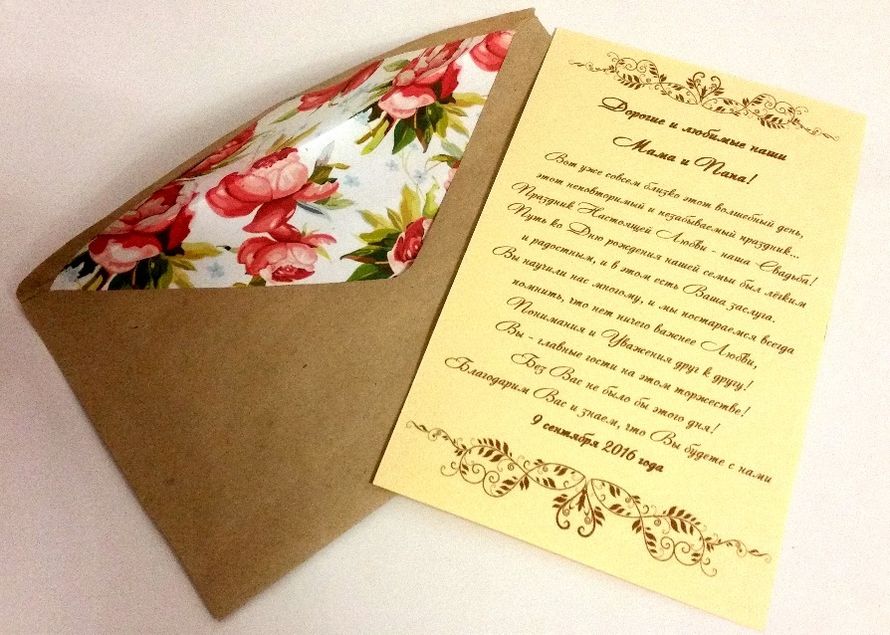 Дорогие и любимые наши
Мама и Папа!
Вот уже совсем близко этот волшебный день,
этот неповторимый и незабываемый праздник...
Праздник Настоящей Любви - наша Свадьба!
Путь ко Дню рождения нашей семьи был лёгким
и радостным, и в этом есть Ваша заслуга.
Вы научили нас многому, и мы постараемся всегда
помнить, что нет ничего важнее Любви,
Понимания и Уважения друг к другу!
Вы - главные гости на этом торжестве!
Без Вас не было бы этого дня!
Благодарим Вас и знаем, что Вы будете с нами
9 сентября 2016 года